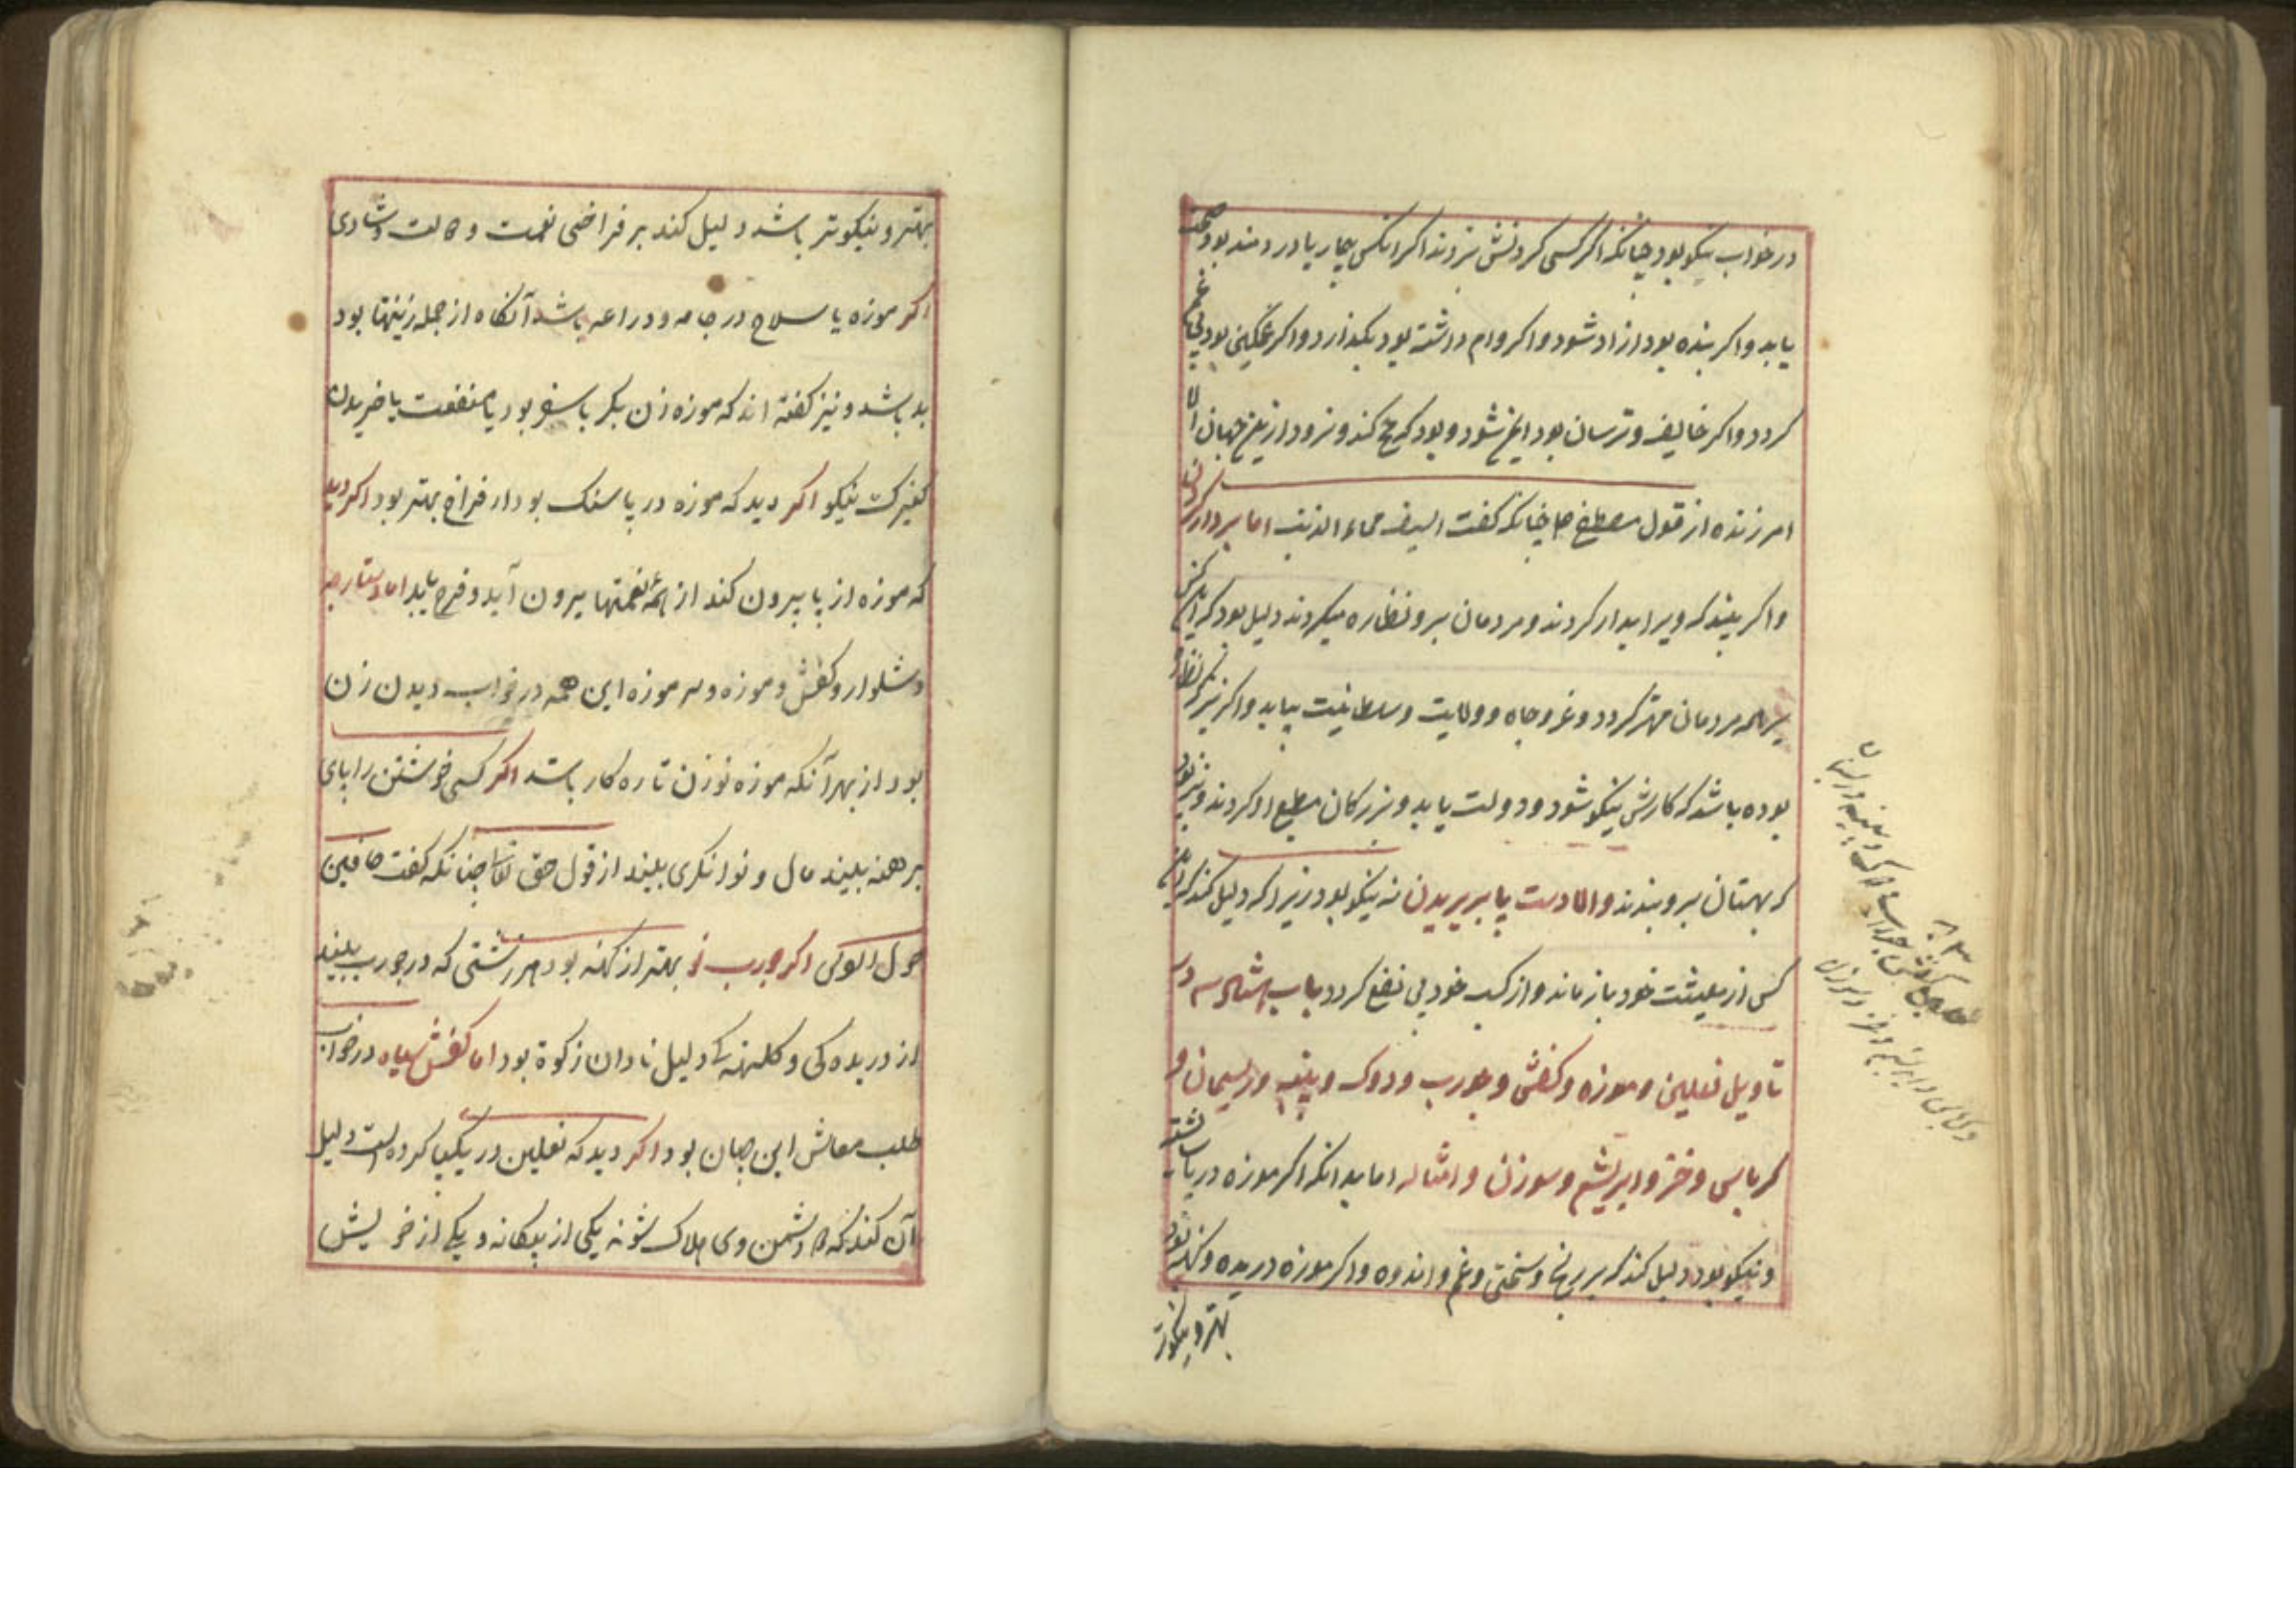 در خواب نیکو بود چنانکه اکر کسی کردنش بزدند اکر انکس بیمار یا دردمند بود صحت
یابد واکر بنده بود ازاد شود واکر وام داشته بود بکذارد واکر غمکین بود بی غم
کردد واکر خایف وترسان بود ایمن شود وبود که حج کند
امرزنده از قول مصطفی چنانکه کفت السیف محاء الذنب اما بردار کردن
واکر بیند که ویرا بدار کردند ومردمان برو نظاره میکردند دلیل بود که
همه مردمان مهتر کردد وعز وجاه وولایت وسلطانیت بیابد واکر
بوده باشد که کارش نیکو شود ودولت یابد وبزرکان مطیع او کردند
که بهتان برو بندند واما دست پا بریدن نه نیکو بود زیرا که دلیل کند که
کس از معیشت خود باز ماند واز کسب خود بی نفع کردد باب در
تاویل نعلین وموزه وکفش وجورب ودوک وپنبه وریسمان و
کرباس وخز وابریشم وسوزن وامثاله اما بدانکه اکر موزه در پا
ونیکو بود دلیل کند که بر رنج وسختی وغم واندوه واکر موزه دریده وکهنه بود
بهتر ونیکوتر
بهتر ونیکوتر باشد دلیل کند بر فراخی نعمت و شادی
اکر موزه با سلاح در جامه ودراعه باشد آنکاه از جمله زینتها بود
بد باشد ونیز کفته اند که موزه زن بکر یا سفر بود یا منفعت یا خریدن
کنیزک نیکو اکر دید که موزه در پا سنک بود ار فراخ بهتر بود اکر دید
که موزه از پا بیرون کند از همه غمها بیرون آید وفرج یابد اما دستار
وشلوار وکفش وموزه وسر موزه این همه در خواب دیدن زن
بود از بهر آنکه موزه نو زن تازه کار باشد اکر کسی خویشتن را پای
برهنه بیند مال و توانکری بیند از قول حق تعالی چنانکه کفت
اکر جورب نو بهتر از کهنه بود هر زشتی که در جورب بیند
از دریده کی و کهنه کی دلیل نادادن زکوة بود اما کفش سیاه در خواب
طلب معاش این جهان بود اکر دید که نعلین در یکپا کرده است دلیل
آن کند که دو دشمن وی هلاک شوند یکی از بیکانه و یکی از خویش